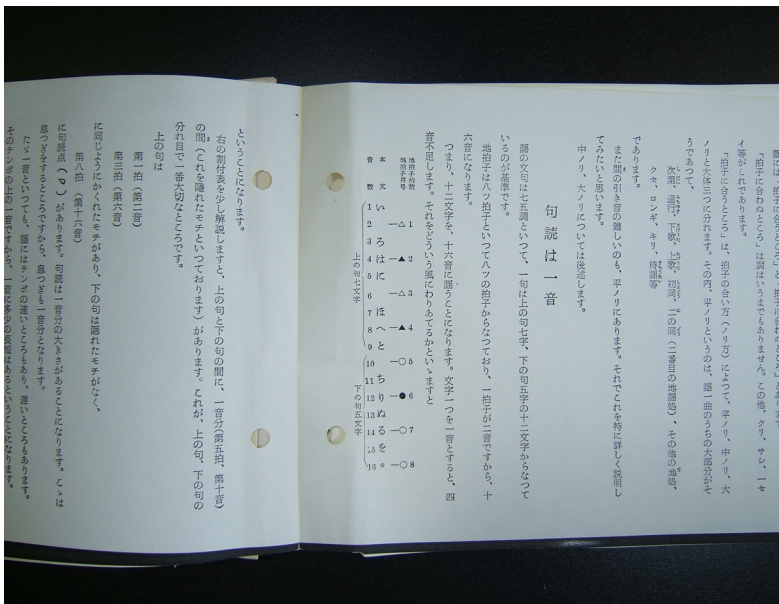 「拍子に合わぬところ」は詞はいうまでもありません。この他、クリ、サシ、一セ
イ等がこれであります。
「拍子に合うところ」は、拍子の合い方(ノリ方)によつて、平ノリ、中ノリ、大
ノリと大体三つに分れます。その内、平ノリというのは、謡一曲のうちの大部分がそ
うであつて、
次第、道行、下歌、上歌、初同、二の同(二番目の地謡処)、その他の地処、
クセ、ロンギ、キリ、待謡等
であります。
また間の引き音の難しいのも、平ノリにあります。それでこれを特に詳しく説明し
てみたいと思います。
中ノリ、大ノリについては後述します。
句読は一音
謡の文句は七五調といつて、一句は上の句七字、下の句五字の十二文字からなつて
いるのが基準です。
地拍子は八ツ拍子といつて八ツの拍子からなつており、一拍子が二音ですから、十
六音になります。
つまり、十二文字を、十六音に謡うことになります。文字一つを一音とすると、四
音不足します。それをどういう風にわりあてるかといゝますと
地拍子数 1 2 3 4 5 6 7 8
地拍子符号 △ ▲ △ ▲ ○ ● ○ ○
本文 い ろはに ほへと ちりぬるを。
音数 1 2 3 4 5 6 7 8 9 10 11 12 13 14 15 16
上の句七文字 下の句五文字
ということになります。
右の割付表を少し解説しますと、上の句と下の句の間に、一音分(第五拍、第十音)
の間(これを隠れたモチといつております)があります。これが、上の句、下の句の
分れ目で一番大切なところです。
上の句は
第一拍(第二音)
第三拍(第六音)
に同じようにかくれたモチがあり、下の句は隠れたモチがなく、
第八拍(第十六音)
に句読点(。)があります。句読は一音分の大きさがあることになります。こゝは
息つぎをするところですから、息つぎも一音分となります。
たゞ一音といつても、謡にはテンポの速いところもあり、遅いところもあります。
そのテンポの上の一音ですから、一音に多少の長短はあるということになります。